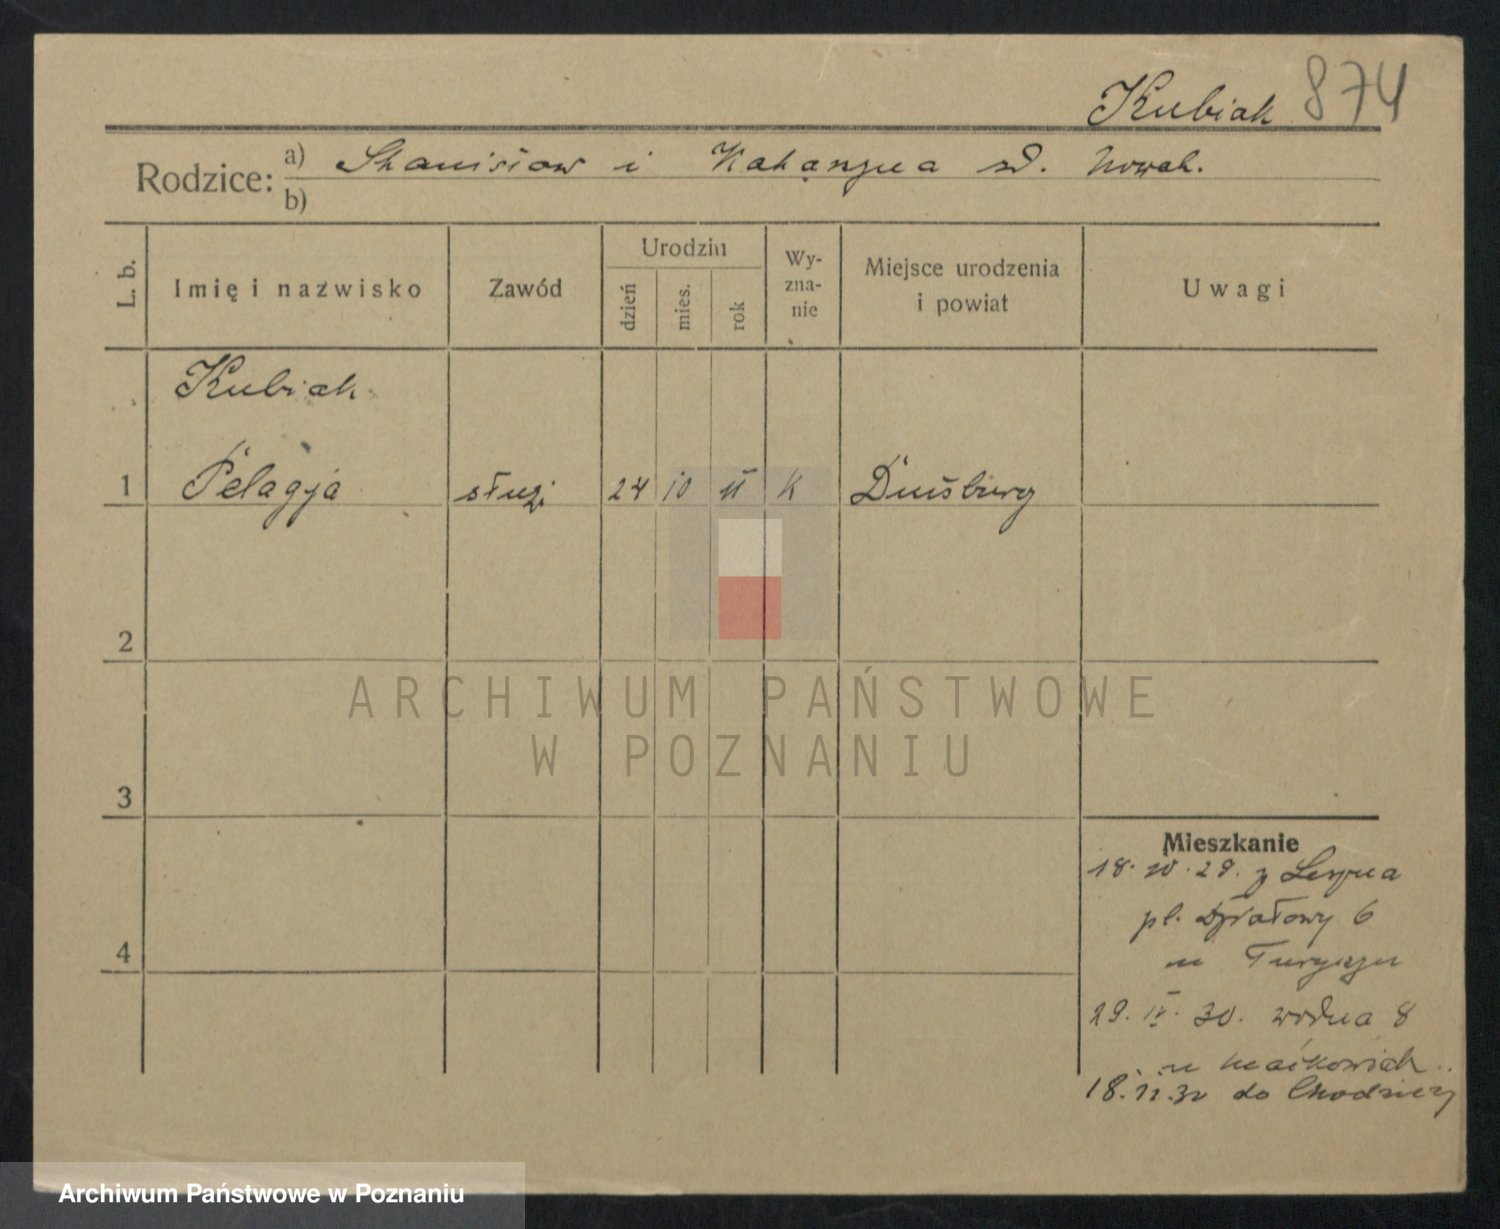 Kubiak 874
Rodzice: a) Stanisław i Katarzyna zd. Nowak.
b)
L. b. Imię i nazwisko Zawód Urodziń dzień mies. rok Wy-zna-nie Miejsce urodzenia i powiat Uwagi
Kubiak
1 Pelagja służ. 24 10 11 K Duisburg
2
ARCHIWUM PAŃSTWOWE
W POZNANIU
3
Mieszkanie
18. 29. z Leszna
pl. Działowy 6
u
4
29. IV. 30. Wodna 8
u
18. 11. 30 do Chodzieży
Archiwum Państwowe w Poznaniu